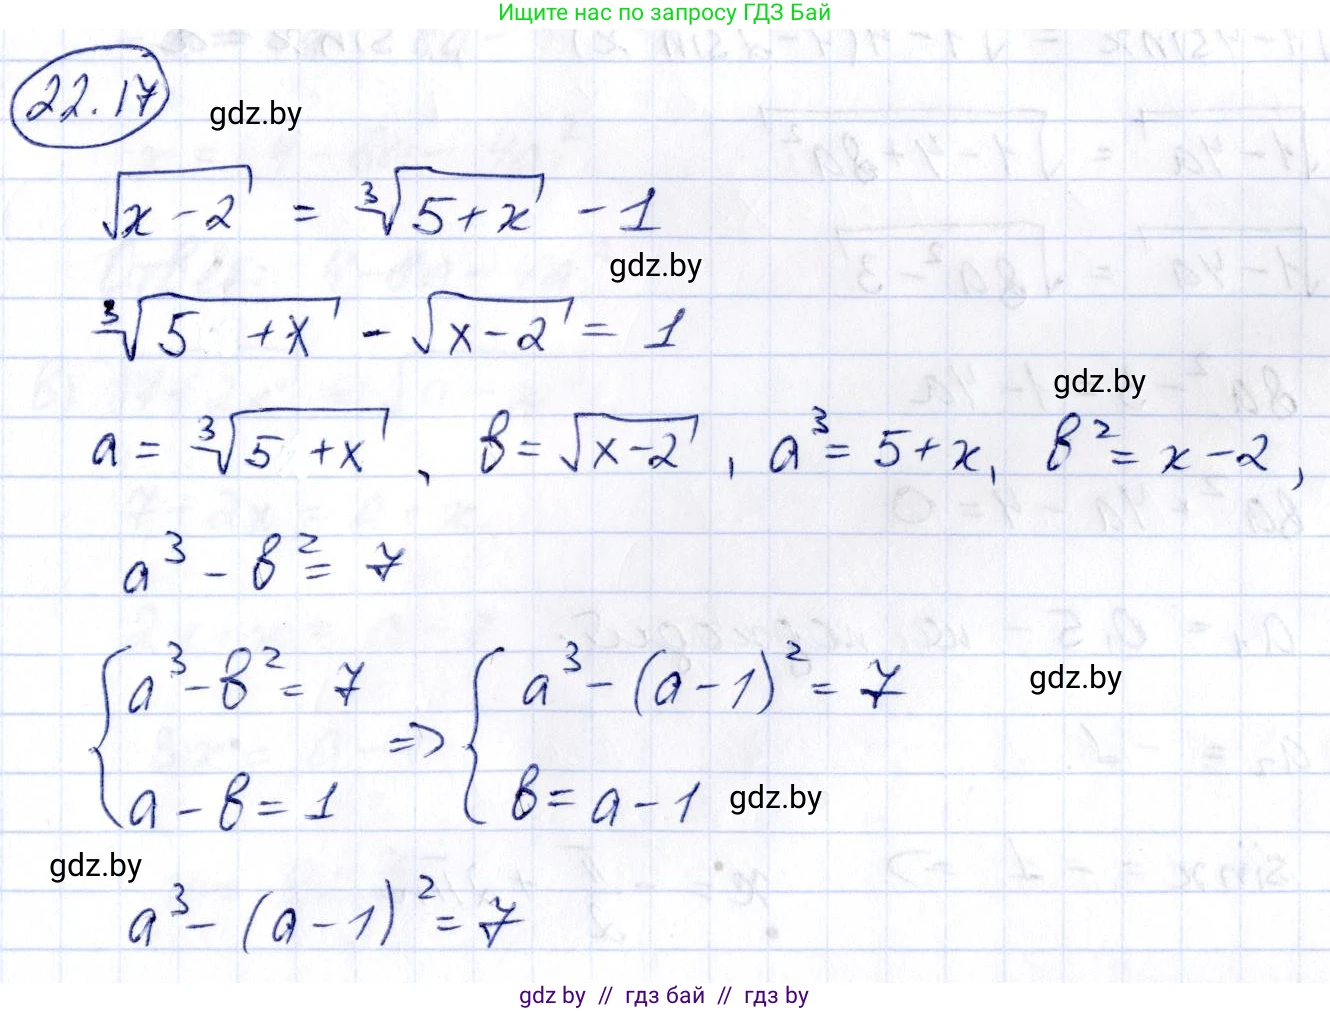 Ищите нас по запросу ГДЗ Бай
22.17
gdz.by
√(x-2) = ∛(5+x) - 1
gdz.by
∛(5+x) - √(x-2) = 1
gdz.by
a = ∛(5+x), b = √(x-2), a³ = 5+x, b² = x-2,
a³ - b² = 7
{a³ - b² = 7 ⇒ {a³ - (a-1)² = 7
gdz.by
a - b = 1 b = a - 1
gdz.by
gdz.by
a³ - (a-1)² = 7
gdz by // гдз бай // gdz by